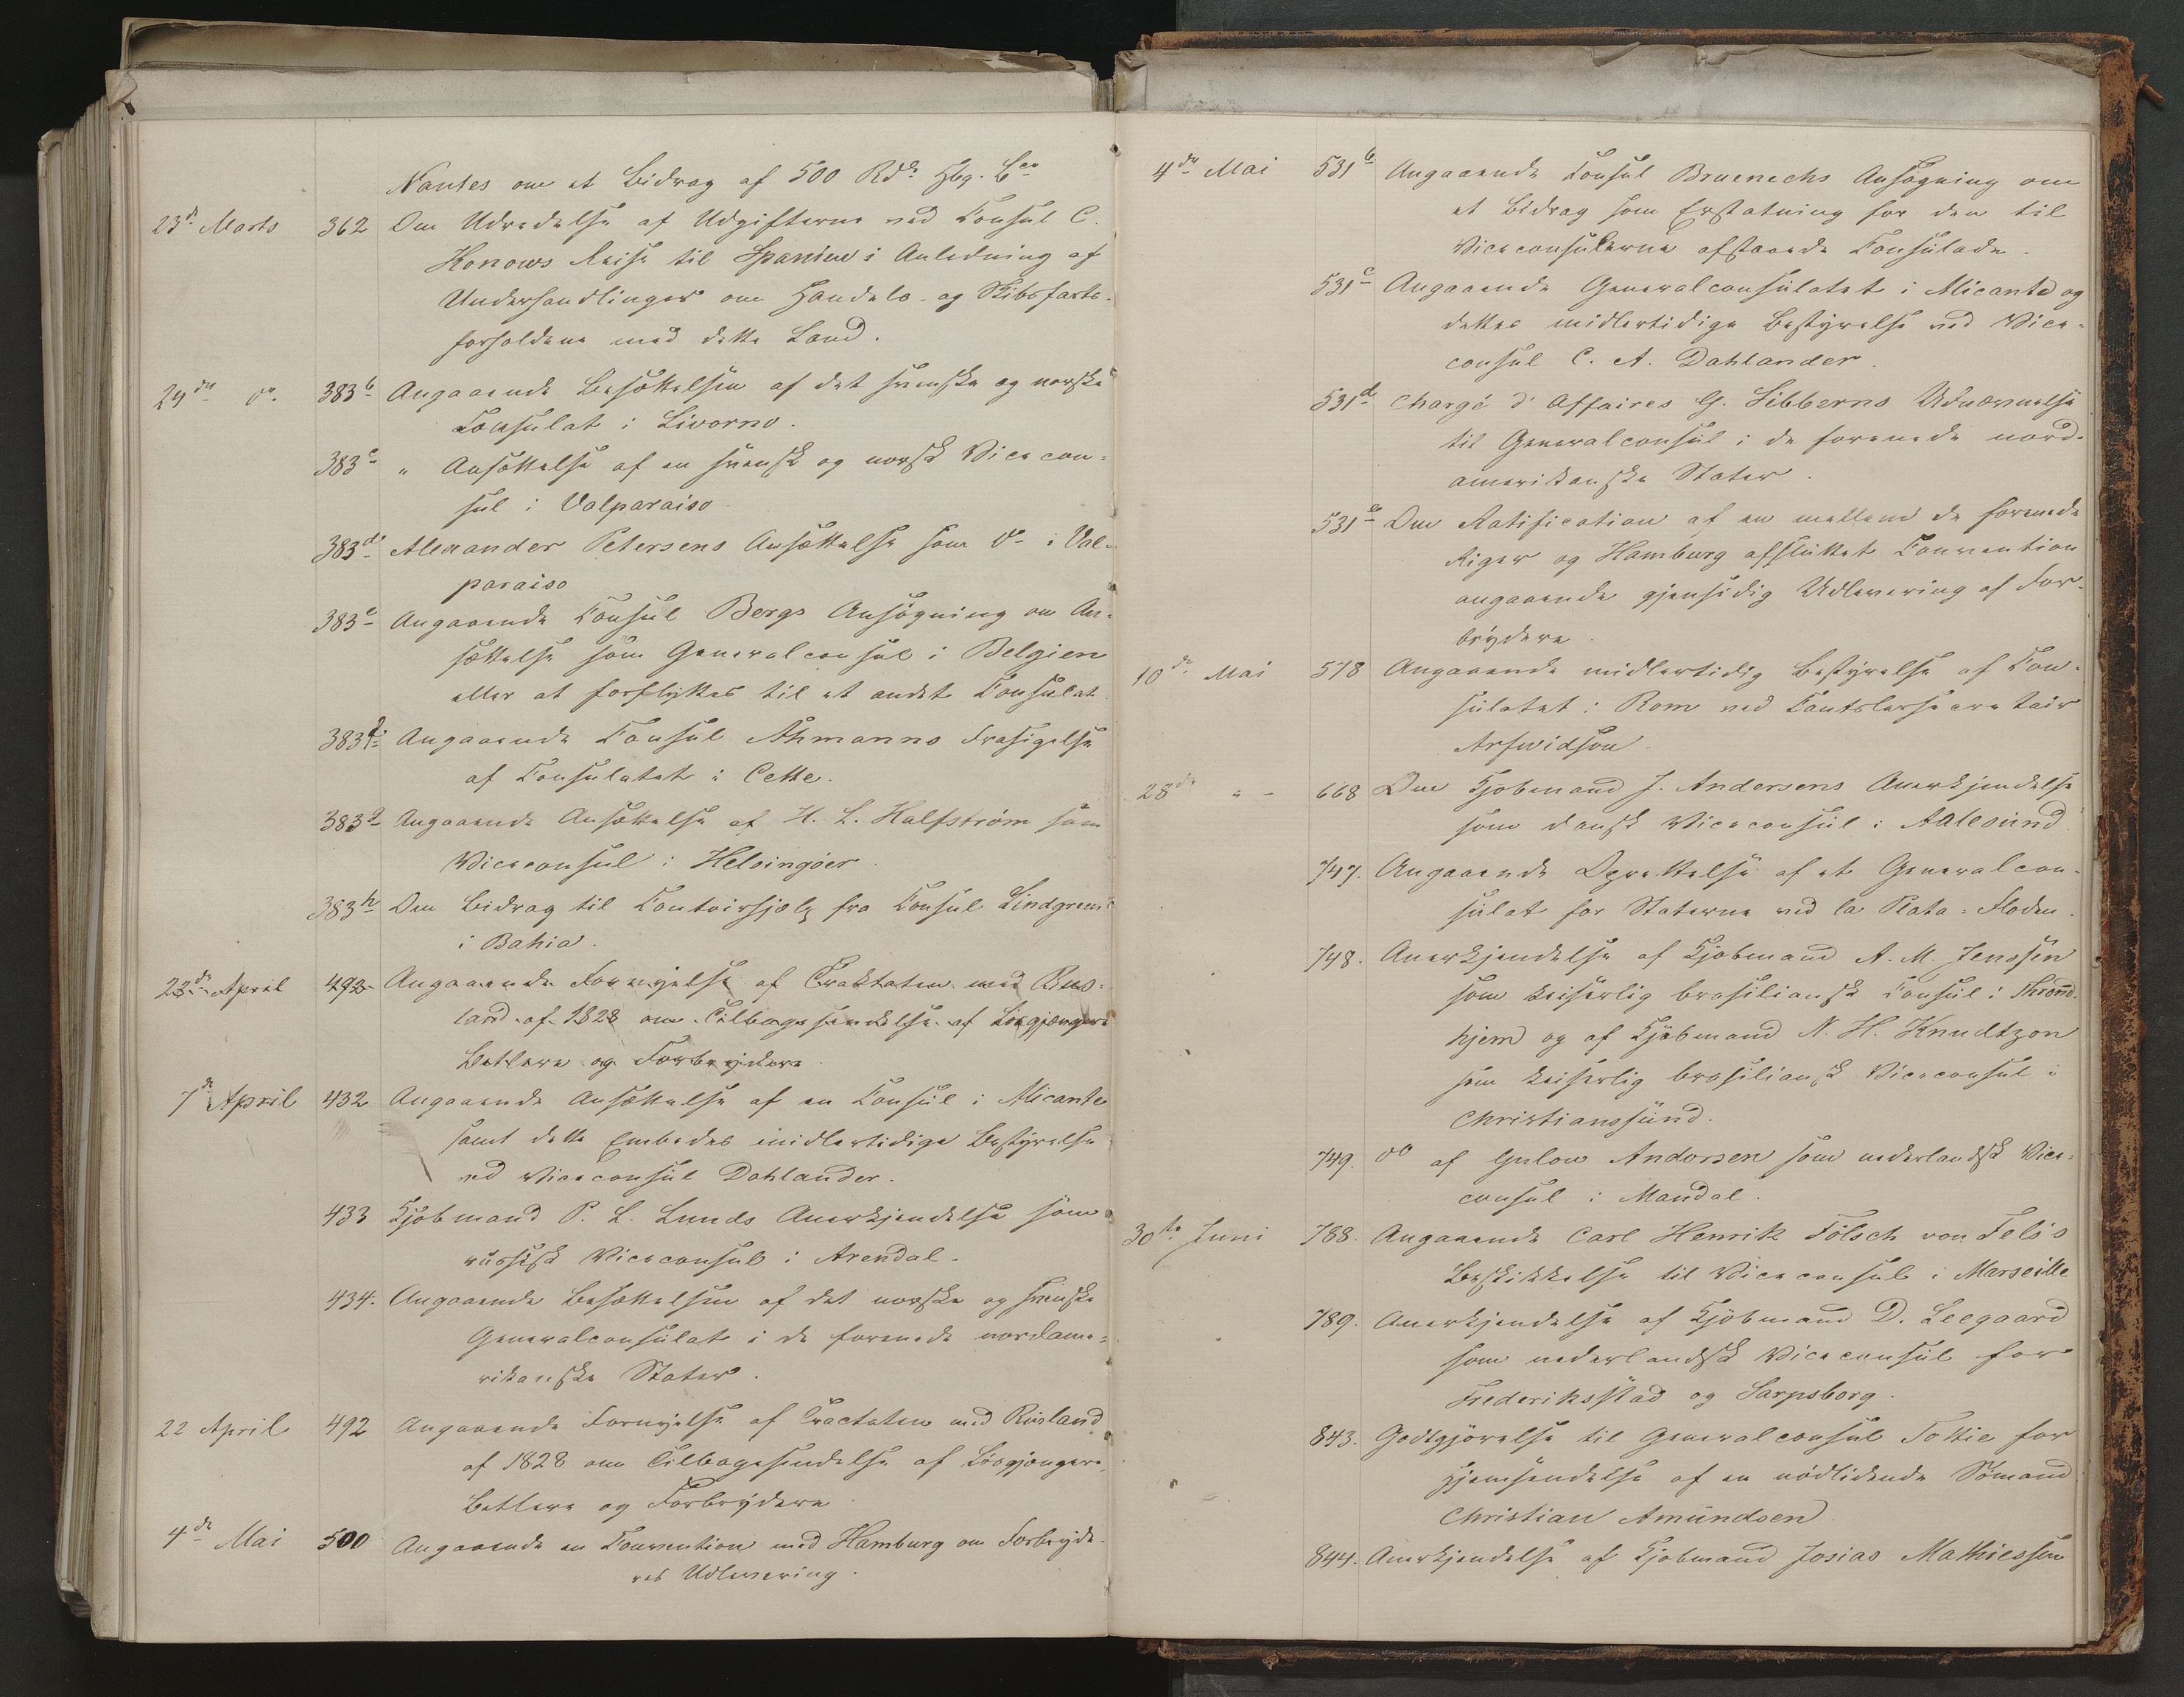 Nantes om et Bidrag af 500 Rdr Hbg. Bco
23de Marts 362 Om Udredelse af Udgifterne ved Consul C.
Konows Reise til Spanien i Anledning af
Underhandlinger om Handels- og Skibsfarts-
forholdene med dette Land.
29de do. 383b Angaaende Besættelsen af det svenske og norske
Consulat i Livorno.
383c „ Ansættelse af en svensk og norsk Vicecon=
sul i Valparaiso
383d Alexander Petersens Ansættelse som do i Val-
paraiso
383e Angaaende Consul Bergs Ansøgning om An=
sættelse som Generalconsul i Belgien
eller at forflyttes til et andet Consulat
383f Angaaende Consul Åhmanns Frasigelse
af Consulatet i Cette.
383g Angaaende Ansættelse af H. L. Halfström som
Viceconsul i Helsingöer
383h Om Bidrag til Contoirhjælp fra Consul Lindgreen
i Bahia.
22de April 492 Angaaende Fornyelse af Traktaten med Rus=
land af 1828 om Tilbagesendelse af Løsgjængere
Betlere og Forbrydere
7de April 432 Angaaende Ansættelse af en Consul i Alicante
samt dette Embedes midlertidige Bestyrelse
ved Viceconsul Dahlander.
433 Kjøbmand P. L. Lunds Anerkjendelse som
russisk Viceconsul i Arendal.
434. Angaaende Besættelsen af det norske og svenske
Generalconsulat i de forenede nordame=
rikanske Stater.
22 April 492 Angaaende Fornyelse af Tractaten med Rusland
af 1828 om Tilbagesendelse af Løsgjængere,
Betlere og Forbrydere
4de Mai 500 Angaaende en Convention med Hamburg om Forbryde-
res Udlevering.
4de Mai 531b Angaaende Consul Bruenechs Ansøgning om
et Bidrag som Erstatning for den til
Viceconsulerne afstaaede Consulade.
531c Angaaende Generalconsulatet i Alicante og
dettes midlertidige Bestyrelse ved Vice=
consul C. A. Dahlander.
531d Chargé d'Affaires G. Sibberns Udnævnelse
til Generalconsul i de forenede nord-
amerikanske Stater.
531e Om Ratification af en mellem de forenede
Riger og Hamburg afsluttet Convention
angaaende gjensidig Udlevering af For-
brydere.
10de Mai 578 Angaaende midlertidig Bestyrelse af Con-
sulatet i Rom ved Cantslersecretair
Arfwidson
28de „ - 668 Om Kjøbmand J. Andersens Anerkjendelse
som dansk Viceconsul i Aalesund
747. Angaaende Oprettelse af et Generalcon-
sulat for Staterne ved la Plata-Floden.
748. Anerkjendelse af Kjøbmand A. M. Jenssen
som keiserlig brasiliansk Consul i Thrond-
hjem og af Kjøbmand N. H. Knudtzon
som keiserlig brasiliansk Viceconsul i
Christianssund.
749. do af Gulow Andorsen som nederlandsk Vice-
consul i Mandal.
30te Juni 788. Angaaende Carl Henrik Fölsch von Fels's
Beskikkelse til Viceconsul i Marseille
789. Anerkjendelse af Kjøbmand D. Leegaard
som nederlandsk Viceconsul for
Frederiksstad og Sarpsborg.
843. Godtgjørelse til Generalconsul Tottie for
Hjemsendelse af en nødlidende Sömand
Christian Amundsen
844. Anerkjendelse af Kjøbmand Josias Mathiessen